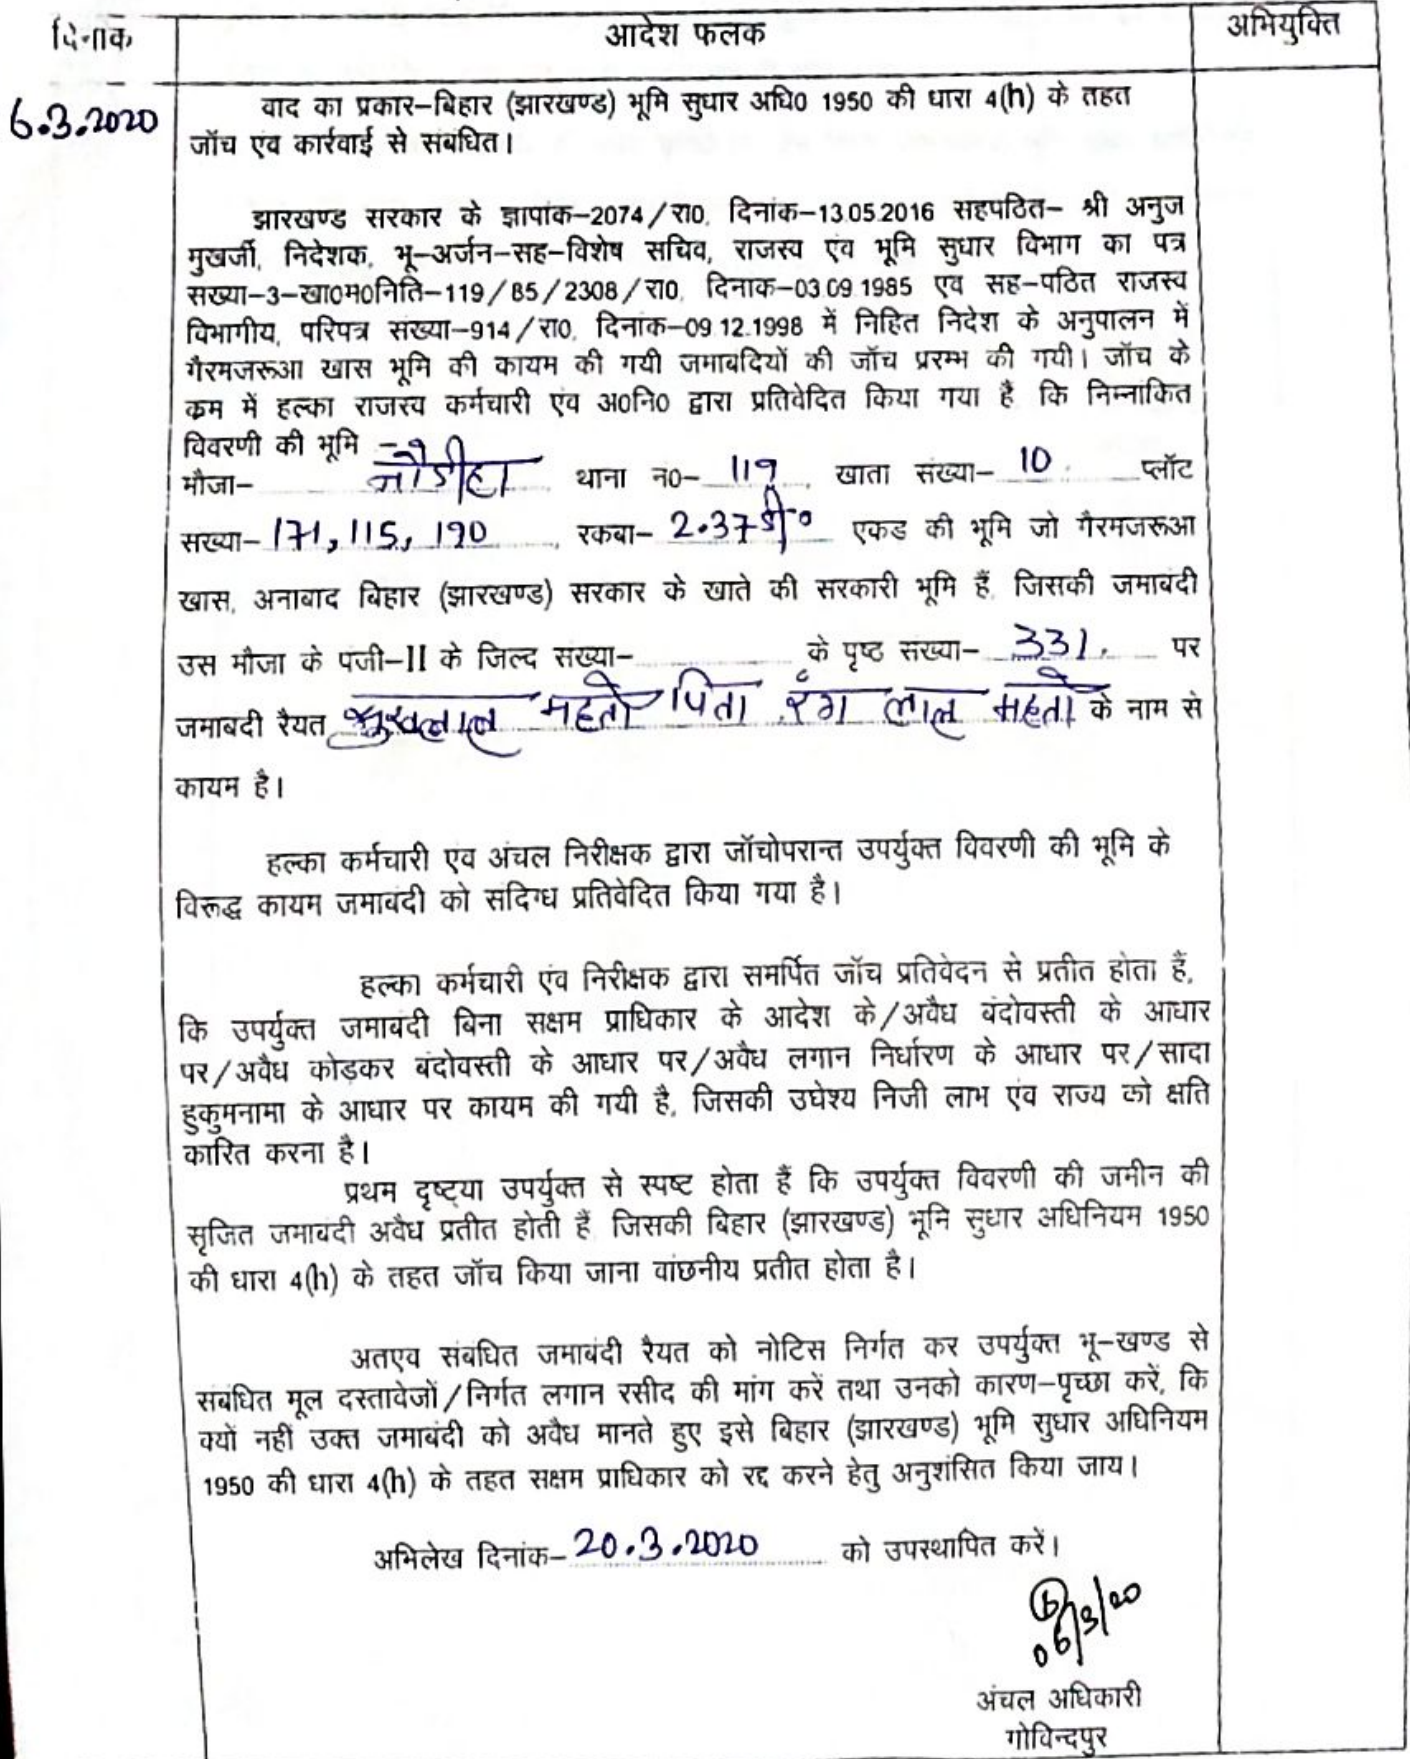 दिनांक आदेश फलक अभियुक्ति
6.3.2020 वाद का प्रकार–बिहार (झारखण्ड) भूमि सुधार अधि0 1950 की धारा 4(h) के तहत
जॉच एंव कार्रवाई से संबधित।
झारखण्ड सरकार के ज्ञापांक–2074/रा0, दिनांक–13.05.2016 सहपठित– श्री अनुज
मुखर्जी, निदेशक, भू–अर्जन–सह–विशेष सचिव, राजस्व एंव भूमि सुधार विभाग का पत्र
सख्या–3–खा0म0निति–119/85/2308/रा0, दिनाक–03.09.1985 एंव सह–पठित राजस्व
विभागीय, परिपत्र संख्या–914/रा0, दिनांक–09.12.1998 में निहित निदेश के अनुपालन में
गैरमजरूआ खास भूमि की कायम की गयी जमाबदियों की जॉच प्ररम्भ की गयी। जॉच के
क्रम में हल्का राजस्व कर्मचारी एंव अ0नि0 द्वारा प्रतिवेदित किया गया है कि निम्नाकित
विवरणी की भूमि –
मौजा– नौडीहा थाना न0– 119 खाता संख्या– 10 प्लॉट
सख्या– 171, 115, 190 रकबा– 2.37डी0 एकड की भूमि जो गैरमजरूआ
खास, अनाबाद बिहार (झारखण्ड) सरकार के खाते की सरकारी भूमि हैं, जिसकी जमाबंदी
उस मौजा के पंजी–II के जिल्द संख्या– के पृष्ठ संख्या– 331. पर
जमाबदी रैयत महतो पिता रंग लाल महतो के नाम से
कायम है।
हल्का कर्मचारी एंव अंचल निरीक्षक द्वारा जॉचोपरान्त उपर्युक्त विवरणी की भूमि के
विरूद्ध कायम जमाबंदी को संदिग्ध प्रतिवेदित किया गया है।
हल्का कर्मचारी एंव निरीक्षक द्वारा समर्पित जॉच प्रतिवेदन से प्रतीत होता हैं,
कि उपर्युक्त जमाबंदी बिना सक्षम प्राधिकार के आदेश के/अवैध बंदोवस्ती के आधार
पर/अवैध कोड़कर बंदोवस्ती के आधार पर/अवैध लगान निर्धारण के आधार पर/सादा
हुकुमनामा के आधार पर कायम की गयी है, जिसकी उघेश्य निजी लाभ एंव राज्य को क्षति
कारित करना है।
प्रथम दृष्ट्या उपर्युक्त से स्पष्ट होता हैं कि उपर्युक्त विवरणी की जमीन की
सृजित जमाबंदी अवैध प्रतीत होती हैं जिसकी बिहार (झारखण्ड) भूमि सुधार अधिनियम 1950
की धारा 4(h) के तहत जॉच किया जाना वांछनीय प्रतीत होता है।
अतएव संबधित जमाबंदी रैयत को नोटिस निर्गत कर उपर्युक्त भू–खण्ड से
संबधित मूल दस्तावेजों/निर्गत लगान रसीद की मांग करें तथा उनको कारण–पृच्छा करें, कि
क्यों नहीं उक्त जमाबंदी को अवैध मानते हुए इसे बिहार (झारखण्ड) भूमि सुधार अधिनियम
1950 की धारा 4(h) के तहत सक्षम प्राधिकार को रद्द करने हेतु अनुशंसित किया जाय।
अभिलेख दिनांक– 20.3.2020 को उपस्थापित करें।
06/3/20
अंचल अधिकारी
गोविन्दपुर